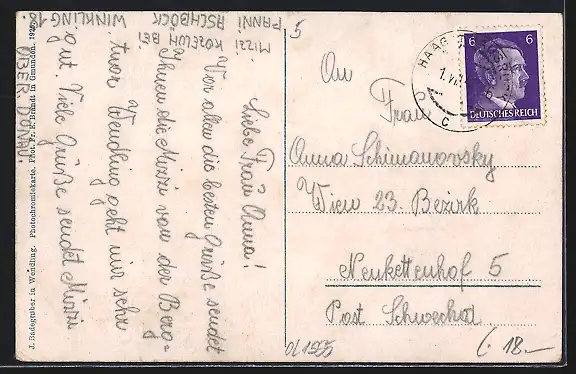 MIZZI KOZELUH BEI
FANNI ASCHBÖCK
WINKLING 18.
OBER. DONAU.
Liebe Frau Anna!
Vor allen die besten Grüße sendet
Ihnen die Mizzi von der Berg=
tour Wendling geht mir sehr
gut. Viele Grüße sendet Mizzi
J. Badegruber in Wendling. Photochromiekarte. Phot. Fr. E. Brandt in Gmunden.
5
HAAG
1.VI.
C
6 6
DEUTSCHES REICH
An
Frau
Anna Schimanovsky
Wien 23. Bezirk
Neukettenhof 5
Post Schwechat
18.—